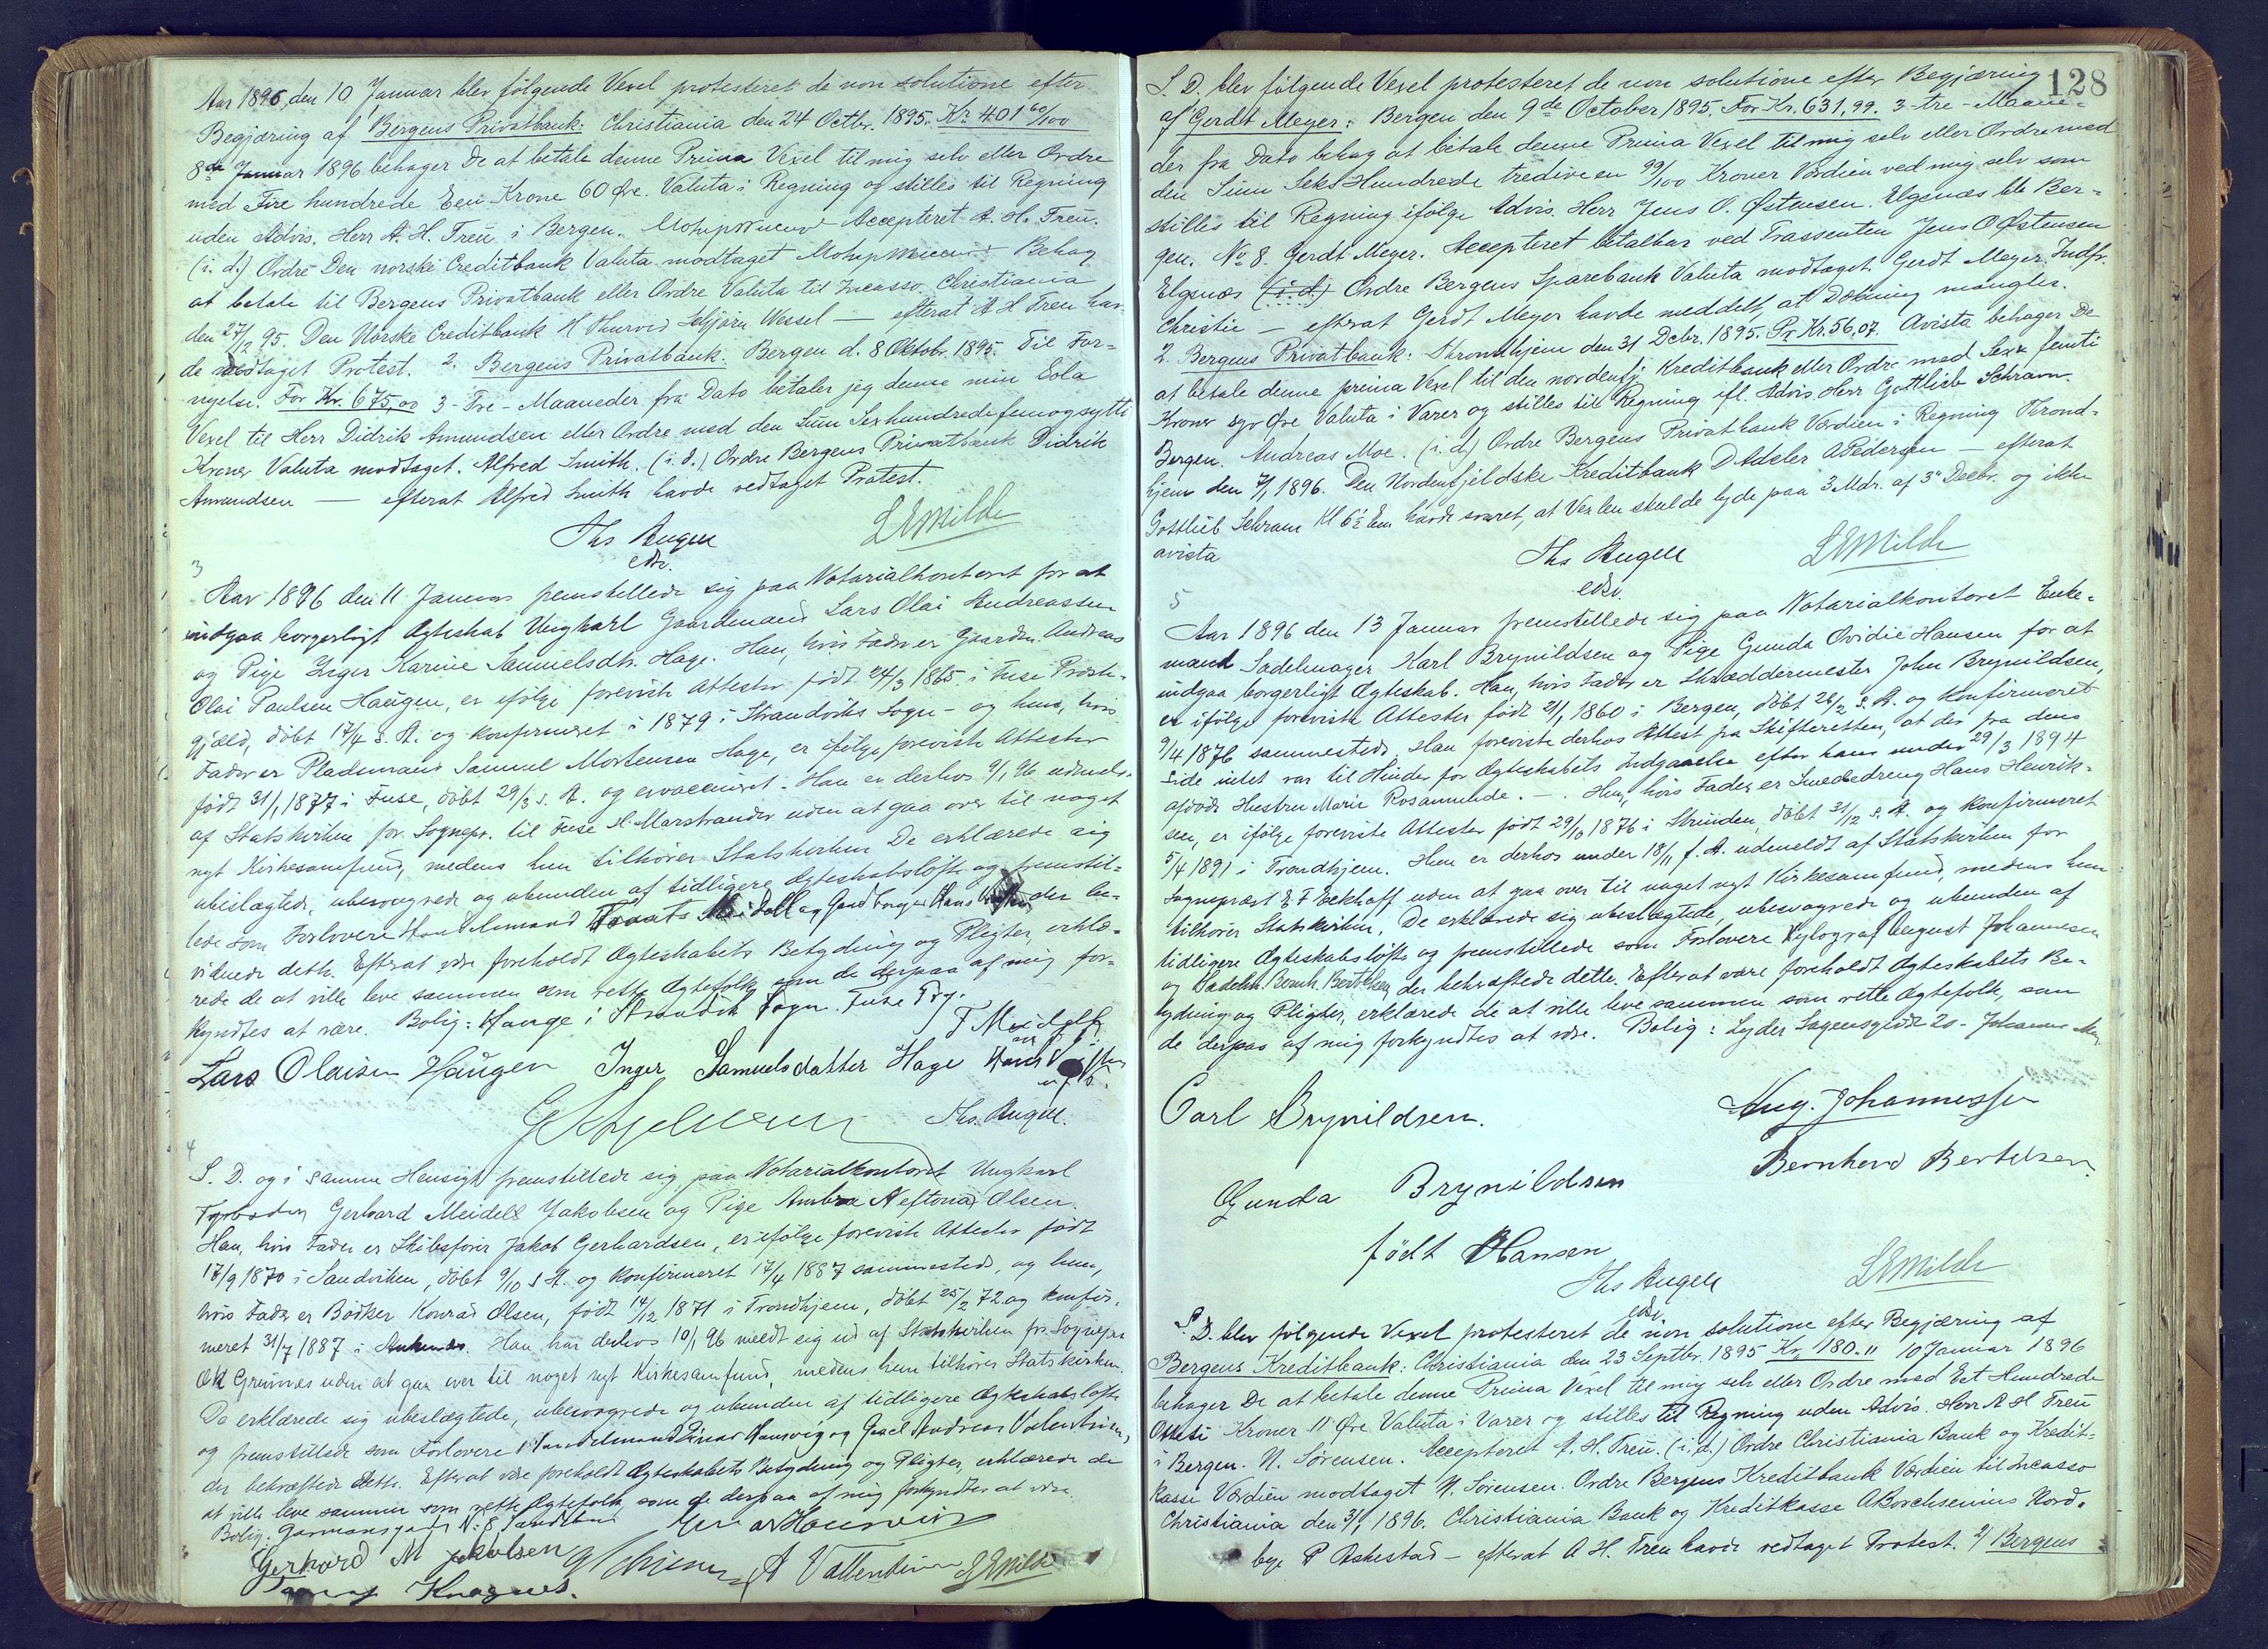 Aar 1896, den 10 Januar blev følgende Vexel protesteret de non solutione efter
Begjæring af Bergens Privatbank: Christiania den 24 Octbr. 1895. Kr 401 60/100
8de Januar 1896 behager De at betale denne Prima Vexel til mig selv eller Ordre
med Fire hundrede Een Krone 60 Øre. Valuta i Regning og stilles til Regning
uden Advis. Herr A. H. Treu i Bergen. Accepteret A. H. Treu.
(i. d.) Ordre Den norske Creditbank Valuta modtaget Behag
at betale til Bergens Privatbank eller Ordre Valuta til Incasso Christiania
den 27/12 95. Den Norske Creditbank Schjørn Wessel — efterat A H Treu hav-
de vedtaget Protest. 2. Bergens Privatbank: Bergen d. 8 Oktobr. 1895. Til For-
nyelse. For Kr. 675,00 3-Tre-Maaneder fra Dato betaler jeg denne min Sola
Vexel til Herr Didrik Amundsen eller Ordre med den Sum Sexhundredefemogsytti
Kroner Valuta modtaget. Alfred Smith. (i. d.) Ordre Bergens Privatbank Didrik
Amundsen — efterat Alfred Smith havde vedtaget Protest.
Ths Angell
edsv.
LEMilde
3
Aar 1896 den 11 Januar fremstillede sig paa Notarialkontoret for at
indgaa borgerligt Ægteskab Ungkarl Gaardmand Lars Olai Andreassen
og Pige Inger Karine Samuelsdtr. Hage. Han, hvis Fader er Gaardm. Andreas
Olai Paulsen Haugen, er ifølge foreviste Attester født 24/3 1865 i Fuse Præste-
gjæld, døbt 17/4 s. A. og konfirmeret i 1879 i Strandviks Sogn - og hun, hvis
Fader er Pladsmand Samuel Mortensen Hage, er ifølge foreviste Attester
født 31/1 1877 i Fuse, døbt 29/3 s. A. og Han er derhos 9/1 96 udmeldt
af Statskirken for Sognepr. til Fuse Marstrander uden at gaa over til noget
nyt Kirkesamfund, medens hun tilhører Statskirken De erklærede sig
ubeslægtede, ubesvogrede og ubunden af tidligere Ægteskabsløfte og fremstil-
lede som Forlovere Handelsmand Meidell og Gaardbruger Hans der be-
vidnede dette. Efterat være foreholdt Ægteskabets Betydning og Pligter, erklæ-
rede de at ville leve sammen som rette Ægtefolk, som de derpaa af mig for-
kyndtes at være. Bolig: Hauge i Strandvik Sogn. Fuse Pgj.
F Meidell
Lars Olaisen Haugen Inger Samuelsdatter Hage Hans
Ths. Angell.
4
S. D. og i samme Hensigt fremstillede sig paa Notarialkontoret Ungkarl
Gerhard Meidell Jakobsen og Pige Olsen.
Han, hvis Fader er Skibsfører Jakob Gerhardsen, er ifølge foreviste Attester født
17/9 1870 i Sandviken, døbt 9/10 s A. og konfirmeret 17/4 1887 sammesteds, og hun,
hvis Fader er Bødker Konrad Olsen, født 14/12 1871 i Trondhjem, døbt 25/2 72 og konfir-
meret 31/7 1887 i Ankenes. Han har derhos 10/1 96 meldt sig ud af Statskirken for Sognepr
OK Grimnes uden at gaa over til noget nyt Kirkesamfund, medens hun tilhører Statskirken.
De erklærede sig ubeslægtede, ubesvogrede og ubunden af tidligere Ægteskabsløfte
og fremstillede som Forlovere Handelsmand Einar Hansvig og Andreas Valentinsen,
der bekræftede dette. Efterat være foreholdt Ægteskabets Betydning og Pligter, erklærede de
at ville leve sammen som rette Ægtefolk, som de derpaa af mig forkyndtes at være.
Bolig: No 8
Gerhard M Jakobsen A Vallentinsen LEMilde

128
S. D. blev følgende Vexel protesteret de non solutione efter Begjæring
af Gerdt Meyer: Bergen den 9de October 1895. For Kr. 631,99. 3-tre-Maane-
der fra Dato behag at betale denne Prima Vexel til mig selv eller Ordre med
den Sum Seks Hundrede tredive en 99/100 Kroner Værdien ved mig selv som
stilles til Regning ifølge Advis. Herr Jens O. Østensen. Elgenæs Ber-
gen. No 8. Gerdt Meyer. Accepteret betalbar ved Trassenten Jens O Østensen
Elgsnæs (i. d.) Ordre Bergens Sparebank Valuta modtaget. Gerdt Meyer. Indfr.
Christie — efterat Gerdt Meyer havde meddelt, at Dækning mangler.
2. Bergens Privatbank: Throndhjem den 31 Decbr. 1895. Pr Kr. 56.07. Avista behager De
at betale denne prima Vexel til den nordenfj. Kreditbank eller Ordre med Sex femti
Kroner syv Øre Valuta i Varer og stilles til Regning ifl. Advis. Herr Gottlieb Schram.
Bergen. Andreas Moe. (i. d.) Ordre Bergens Privatbank Værdien i Regning Thrond-
hjem den 7/1 1896. Den Nordenfjeldske Kreditbank D Adeler A Pedersen — efterat
Gottlieb Schram Kl 6½ Em havde svaret, at Vexlen skulde lyde paa 3 Mdr. af 3 Decbr. og ikke
avista
Ths Angell
edsv.
LEMilde
5
Aar 1896 den 13 Januar fremstillede sig paa Notarialkontoret Enke-
mand Sadelmager Karl Brynildsen og Pige Gunda Ovidie Hansen for at
indgaa borgerligt Ægteskab. Han, hvis Fader er Skræddermester John Brynildsen,
er ifølge foreviste Attester født 2/1 1860 i Bergen, døbt 26/2 s. A. og konfirmeret
9/4 1876 sammesteds. Han foreviste derhos Attest fra Skifteretten, at der fra dens
Side intet var til Hinder for Ægteskabets Indgaaelse efter hans under 29/3 1894
afdøde Hustru Marie Rosamunde. —. Hun, hvis Fader er Smededreng Hans Henrik-
sen, er ifølge foreviste Attester født 29/10 1876 i Strinden, døbt 31/12 s. A. og konfirmeret
5/4 1891 i Trondhjem. Hun er derhos under 18/11 f. A. udmeldt af Statskirken for
Sognepræst E. F Eckhoff uden at gaa over til noget nyt Kirkesamfund, medens hun
tilhører Statskirken. De erklærede sig ubeslægtede, ubesvogrede og ubunden af
tidligere Ægteskabsløfte og fremstillede som Forlovere Xylograf August Johannesen
og Sadelm. Bernh. Bertelsen, der bekræftede dette. Efterat være foreholdt Ægteskabets Be-
tydning og Pligter, erklærede de at ville leve sammen som rette Ægtefolk, som
de derpaa af mig forkyndtes at være. Bolig: Lyder Sagensgade 20 -
Carl Brynildsen.
Aug. Johannessen
Bernhard Bertelsen.
Gunda Brynildsen
født Hansen
Ths Angell
edsv.
LEMilde
S. D. blev følgende Vexel protesteret de non solutione efter Begjæring af
Bergens Kreditbank: Christiania den 23 Septbr. 1895 Kr. 180.11 10 Januar 1896
behager De at betale denne Prima Vexel til mig selv eller Ordre med Et Hundrede
Otteti Kroner 11 Øre Valuta i Varer og stilles til Regning uden Advis. Herr A H Treu
i Bergen. N. Sørensen. Accepteret A. H. Treu. (i. d.) Ordre Christiania Bank og Kredit-
kasse Værdien modtaget N. Sørensen. Ordre Bergens Kreditbank Værdien til Incasso
Christiania den 3/1 1896. Christiania Bank og Kreditkasse A Borchsenius Nord-
bye P Askestad — efterat A H. Treu havde vedtaget Protest. 2/ Bergens